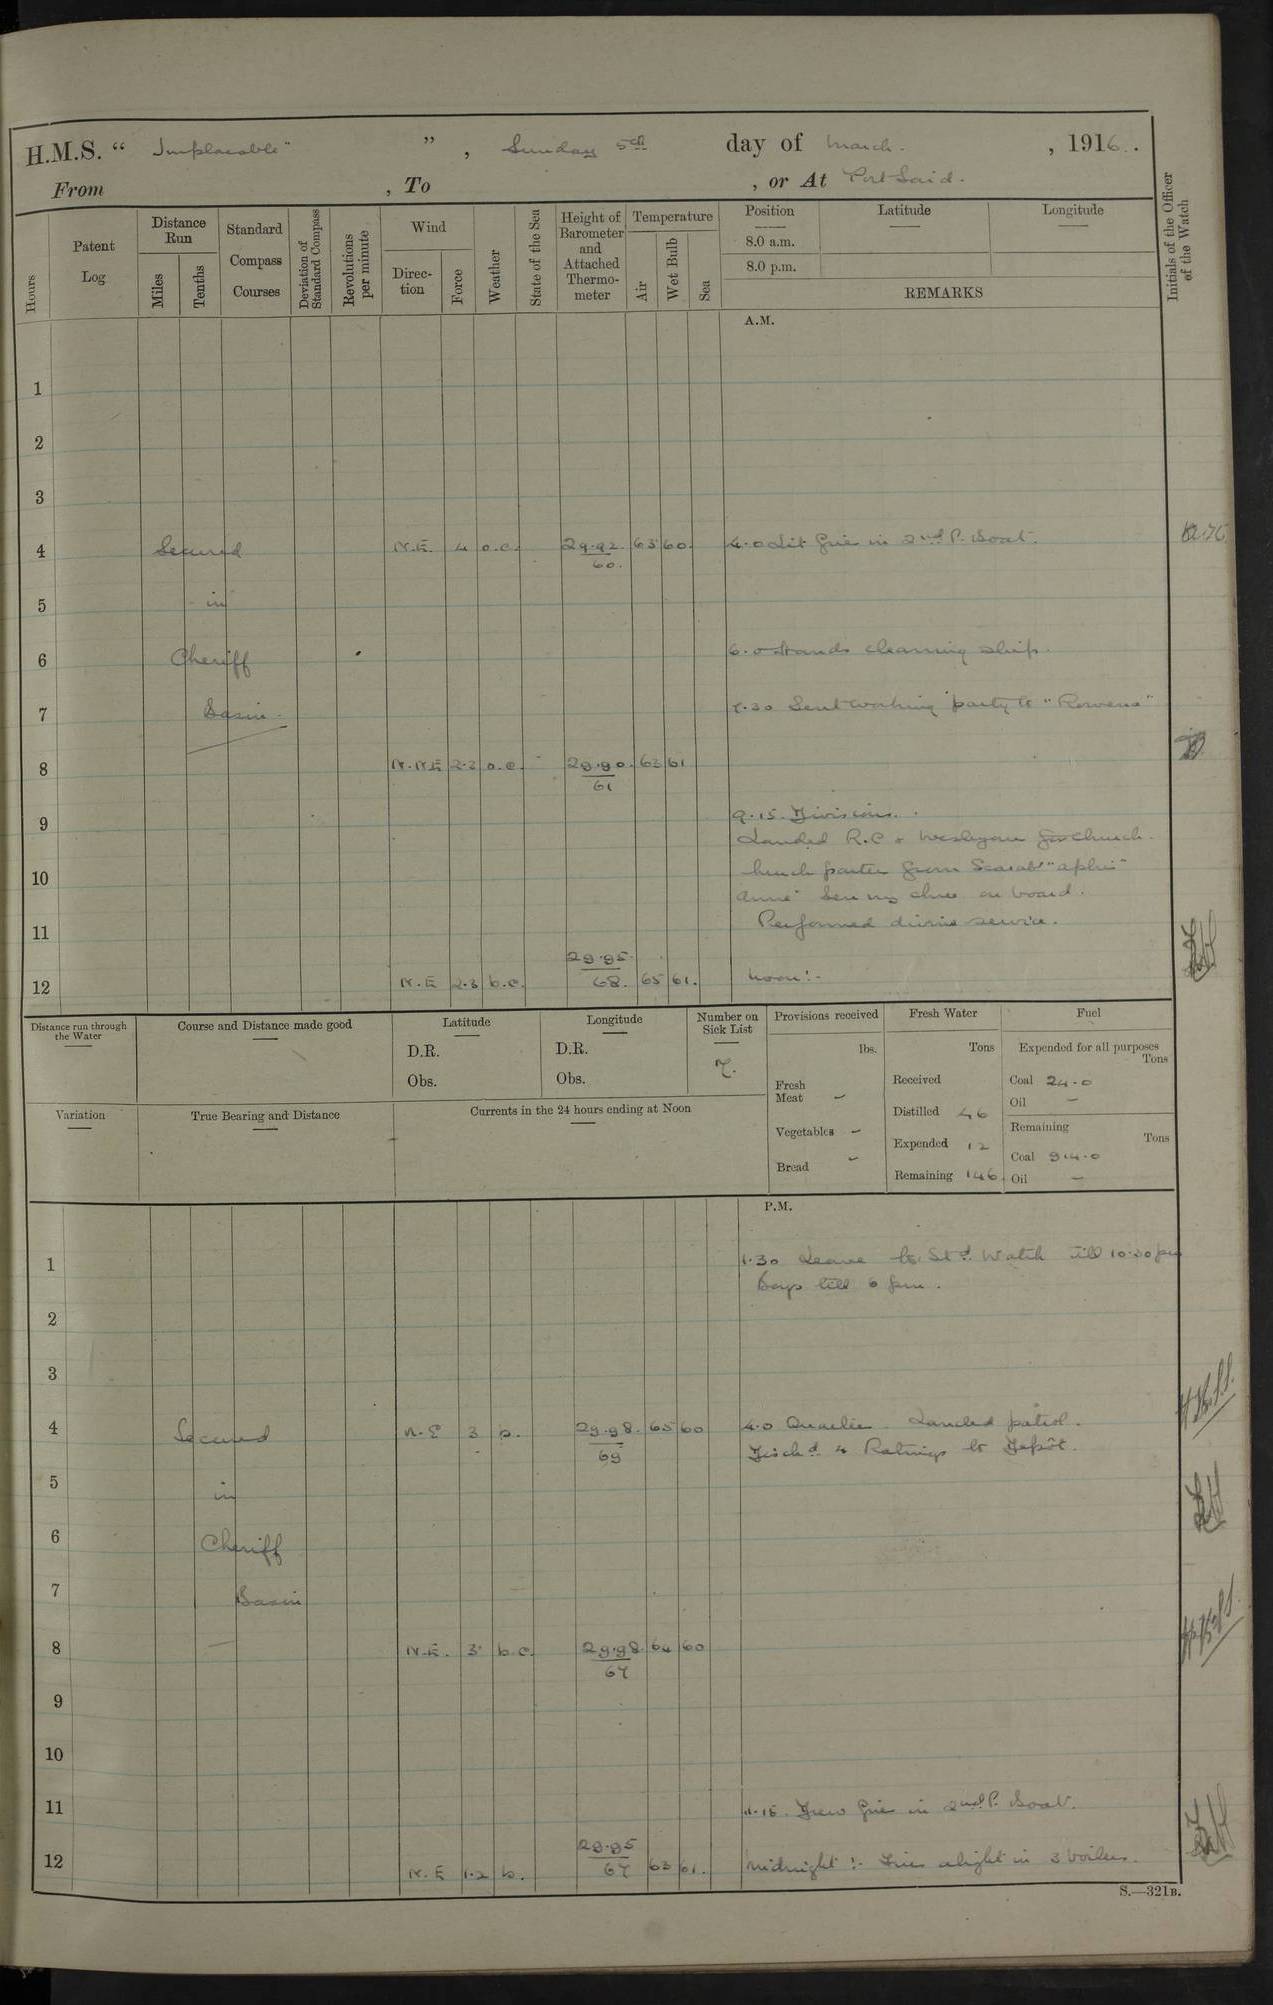 H.M.S. “ Implacable ” , Sunday 5th day of March. , 1916.
From , To , or At Port Said.
Hours
Patent Log
Distance Run
Miles
Tenths
Standard Compass Courses
Deviation of Standard Compass
Revolutions per minute
Wind
Direction
Force
Weather
State of the Sea
Height of Barometer and Attached Thermometer
Temperature
Air
Wet Bulb
Sea
Position
8.0 a.m.
8.0 p.m.
Latitude
Longitude
REMARKS
Initials of the Officer of the Watch
A.M.
1
2
3
4 Secured N.E. 4 o.c. 29.92 60. 63 60. 4.0 Lit fire in 2nd P. Boat.
5 in
6 Cheriff 6.0 Hands cleaning ship.
7 Basin. 7.30 Sent working party to "Rowena"
8 N.NE 2.3 o.c. 29.90. 61 63 61
9 9.15 Divisions.
Landed R.C & Wesleyan Church
10 from Scarab "Aphis"
Anne on board.
11 Performed divine service.
12 N.E 2.3 b.c. 29.95. 68. 65 61. Noon:-
Distance run through the Water
Course and Distance made good
Latitude
D.R.
Obs.
Longitude
D.R.
Obs.
Number on Sick List
7.
Provisions received
lbs.
Fresh Meat -
Vegetables -
Bread -
Fresh Water
Tons
Received
Distilled 46
Expended 12
Remaining 146
Fuel
Expended for all purposes
Tons
Coal 24.0
Oil -
Remaining
Tons
Coal 914.0
Oil -
Variation
True Bearing and Distance
Currents in the 24 hours ending at Noon
P.M.
1 1.30 Leave to St'd. Watch till 10.30 pm
Boys till 6 pm.
2
3
4 Secured N.E 3 b. 29.98. 69 65 60 4.0 Quarters. Landed patrol.
Disch'd. 4 Ratings to Depôt.
5 in
6 Cheriff
7 Basin
8 N.E. 3 b.c. 29.98. 67 64 60
9
10
11 11.15. Drew fire in 2nd P. Boat.
12 N.E 1.2 b. 29.95 67 63 61. Midnight:- Fires alight in 3 boilers.
S.—321B.